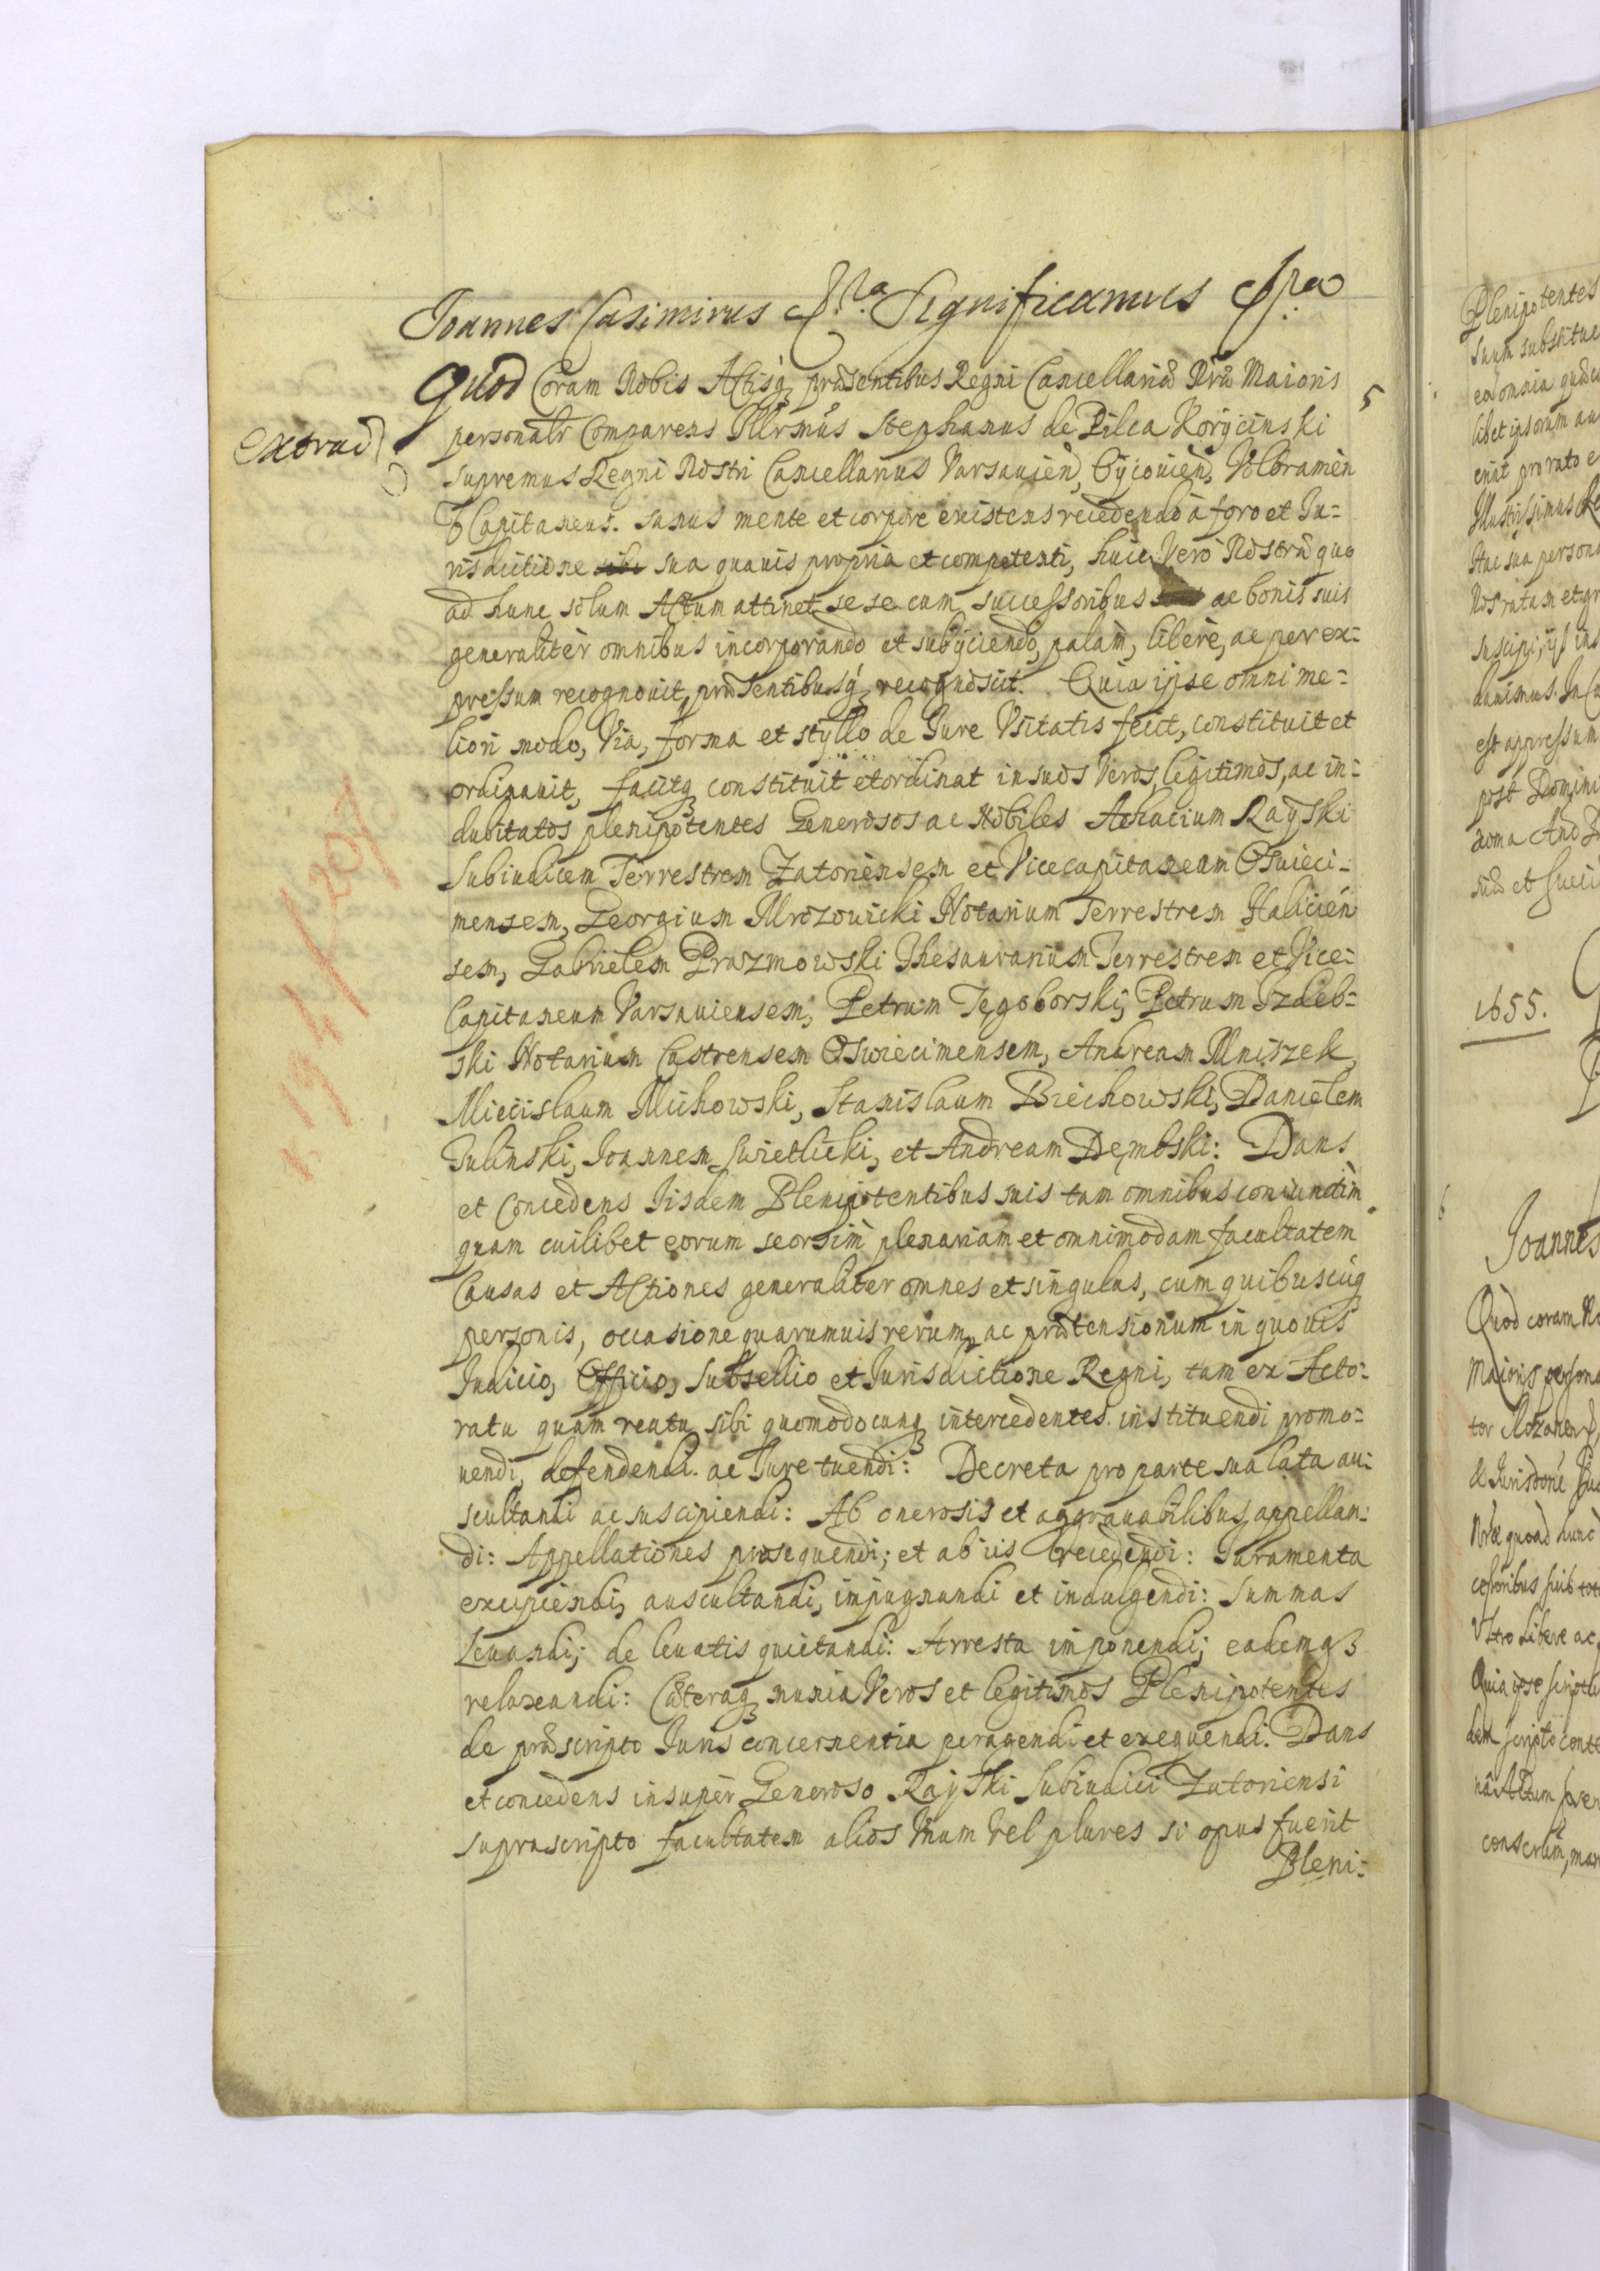 Joannes Casimirus &c.ra Significamus &c.ra
Quod Coram Nobis Actisq3 præsentibus Regni Cancellariæ Nræ Maioris
5
extrad
personalr Comparens Illrmus Stephanus de Pilca Koryciński
Supremus Regni Nostri Cancellarius Varsauien, Oycouien, Wolbramen
Capitaneus. sanus mente et corpore existens recedendo à foro et Ju-
risdictione sua quauis propria et competenti, huic Vero Nostræ quo
ad hunc solum Actum attinet se se cum successoribus ac bonis suis
generalitèr omnibus incorporando et subÿciendo, palàm, liberè, ac per ex-
pressum recognouit, præsentibusq3 recognoscit. Quia ipse omni me-
liori modo, Via, forma et styllo de Jure Vsitatis fecit, constituit et
ordinauit, facitq3 constituit et ordinat in suos Veros, legitimos, ac in-
dubitatos plenipotentes Generosos ac Nobiles Achacium Rayski
Subiudicem Terrestrem Zatoriensem et Vicecapitaneum Osvieci-
mensem, Georgium Mrozowicki Notarium Terrestrem Halicien
sem, Gabrielem Prazmowski Thesaurarium Terrestrem et Vice-
Capitaneum Varsauiensem, Petrum Tęgoborski, Petrum Izdeb-
ski Notarium Castrensem Oswiecimensem, Andream Mniszek,
Miecislaum Michowski, Stanislaum Biechowski, Danielem
Tulinski, Joannem Swietlicki, et Andream Dęmbski: Dans
et Concedens Iisdem Plenipotentibus suis tam omnibus coniunctim
quam cuilibet eorum seorsim plenariam et omnimodam facultatem
Causas et Actiones generaliter omnes et singulas, cum quibuscúq
personis, occasione quarumuis rerum, ac prætensionum in quouis
Judicio, Officio, Subsellio et Jurisdictione Regni, tam ex Acto-
ratu quam reatu sibi quomodocunq3 intercedentes. instituendi promo-
uendi, defendendi. ac Jure tuendi: Decreta pro parte sua lata au-
scultandi ac suscipiendi: Ab onerosis et aggrauabilibus appellan-
di: Appellationes prosequendi; et ab iis recedendi: Juramenta
excipiendi, auscultandi, impugnandi et indulgendi: Summas
Leuandi; de leuatis quietandi: Arresta imponendi; eademq3
relaxandi: Cæteraq3 munia Veros et legitimos Plenipotentes
de præscripto Juris concernentia peragendi et exequendi. Dans
et concedens insuper Generoso Rayski Subiudici Zatoriensi
suprascripto facultatem alios Vnum Vel plures si opus fuerit
Pleni-
Plenipotentes
suum substitue
ea omnia
libet ipsorum au
erint pro rato e
Illustrissimus
Hac sua persona
Nos ratam et gr
suscipi,
est appressum
post Domini
1655.
Joannes
Quod coram No
Maioris persona
Nræ quoad hunc
Vltro Libere ac
Quia ipse scripto
dem scripto conte